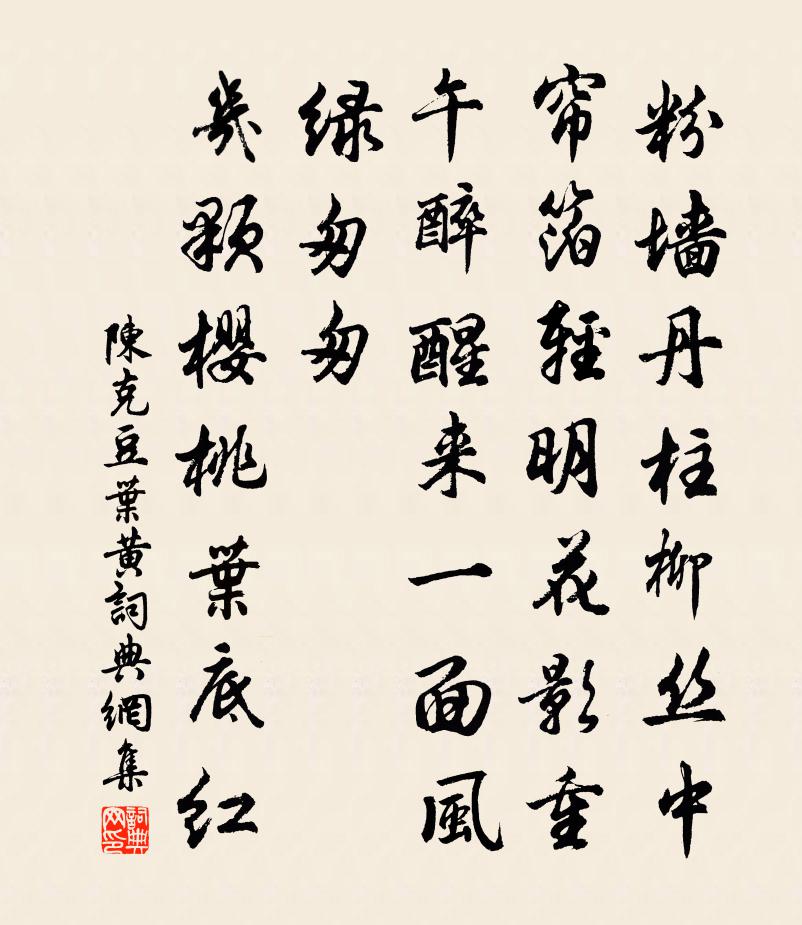 粉墙丹柱柳丝中
帘箔輕明花影重
午醉醒来一面風
绿匆匆
幾顆櫻桃葉底红
陳克豆葉黄詞典網集
詞典网印